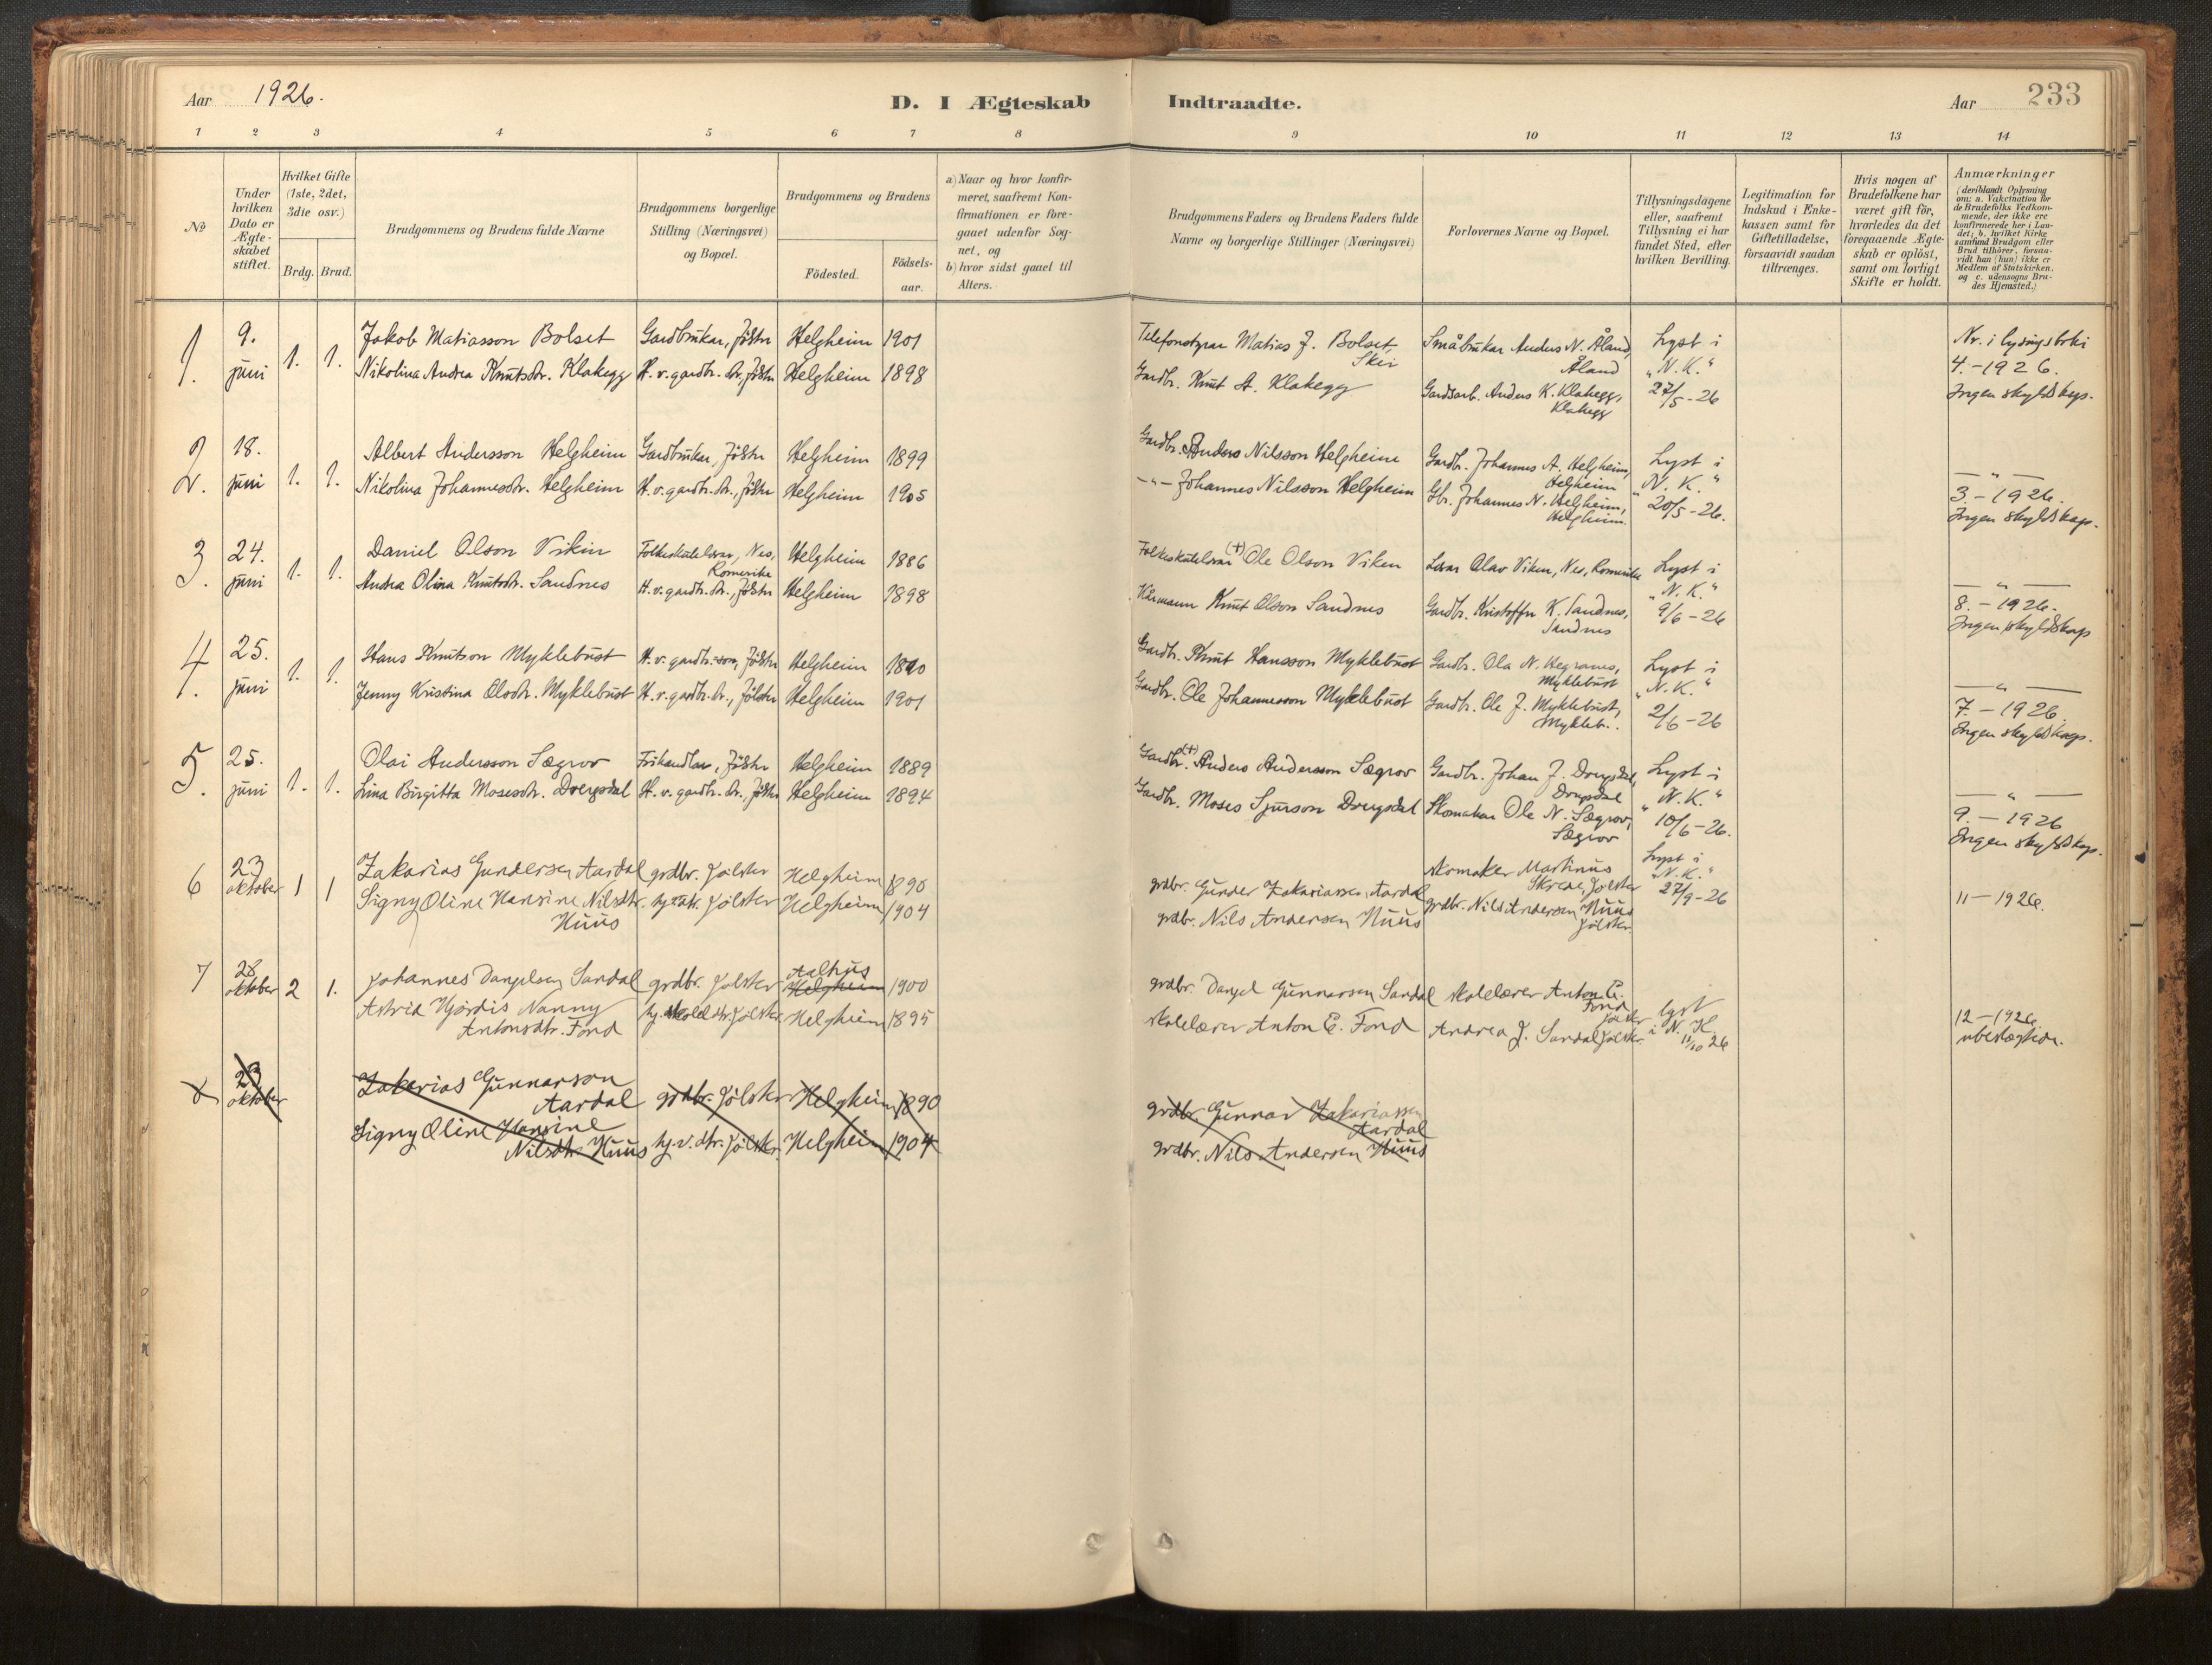 Aar 1926.
D. I Ægteskab
Indtraadte.
Aar 233
1 2 3 4 5 6 7 8 9 10 11 12 13 14
No
Under hvilken Dato er Ægte-skabet stiftet.
Hvilket Gifte (1ste, 2det, 3die osv.)
Brdg. Brud.
Brudgommens og Brudens fulde Navne
Brudgommens borgerlige Stilling (Næringsvei) og Bopæl.
Brudgommens og Brudens
Födested.
Födsels-aar.
a) Naar og hvor konfir-meret, saafremt Kon-firmationen er fore-gaaet udenfor Sog-net, og
b) hvor sidst gaaet til Alters.
Brudgommens Faders og Brudens Faders fulde Navne og borgerlige Stillinger (Næringsvei)
Forlovernes Navne og Bopæl.
Tillysningsdagene eller, saafremt Tillysning ei har fundet Sted, efter hvilken Bevilling.
Legitimation for Indskud i Enke-kassen samt for Giftetilladelse, forsaavidt saadan tiltrænges.
Hvis nogen af Brudefolkene har været gift för, hvorledes da det foregaaende Ægte-skab er oplöst, samt om lovligt Skifte er holdt.
Anmærkninger
(deriblandt Oplysning om: a. Vakcination for de Brudefolks Vedkom-mende, der ikke ere konfirmerede her i Lan-det; b. hvilket Kirke samfund Brudgom eller Brud tilhörer, forsaa-vidt han (hun) ikke er Medlem af Statskirken, og c. udensogns Bru-des Hjemsted.)
1. 9. juni 1. 1.
Jakob Matiasson Bolset Gardbrukar, Jölster Helgheim 1901
Nikolina Andrea Knutsdr. Klakegg H. v. gardbr. dr., Jölster Helgheim 1898
Telefonstyrar Matias J. Bolset, Skei
Gardbr. Knut A. Klakegg
Småbrukar Anders N. Åland, Åland
Gardsarb. Anders K. Klakegg, Klakegg
Lyst i „N.K.“ 27/5-26
Nr. i lysingsboki 4.-1926. Ingen skyldskap.
2. 18. juni 1. 1.
Albert Andersson Helgheim Gardbrukar, Jölster Helgheim 1899
Nikolina Johannesdr. Helgheim H. v. gardbr. dr., Jölster Helgheim 1905
Gardbr. Anders Nilsson Helgheim
-"- Johannes Nilsson Helgheim
Gardbr. Johannes A. Helgheim, Helgheim
Gbr. Johannes N. Helgheim, Helgheim.
Lyst i „N. K.“ 20/5-26.
— " — 3.-1926. Ingen skyldskap.
3. 24. juni 1. 1.
Daniel Olson Vikin Folkeskulelærar, Nes, Romerike Helgheim 1886
Andrea Olina Knutsdr. Sandnes H. v. gardbr. dr., Jölster Helgheim 1898
Folkeskulelærar (+) Ole Olson Viken
Kårmann Knut Olson Sandnes
Lærar Olav Viken, Nes, Romerike
Gardbr. Kristoffer K. Sandnes, Sandnes
Lyst i „N.K.“ 9/6-26
— " — 8.-1926. Ingen skyldskap
4. 25. juni 1. 1.
Hans Knutson Myklebust H. v. gardbr.-son, Jölster Helgheim
Jenny Kristina Olsdr. Myklebust H. v. gardbr. dr., Jölster Helgheim 1901
Gardbr. Knut Hansson Myklebust
Gardbr. Ole Johannesson Myklebust
Gardbr. Ola N. Hegrenes, Myklebust
Gardbr. Ole J. Myklebust, Mykleb..
Lyst i „N.K.“ 2/6-26
— " — 7.-1926. Ingen skyldskap.
5. 25. juni 1. 1.
Olai Andersson Sægrov Frihandlar, Jölster Helgheim 1889
Lina Birgitta Mosesdr. Dvergsdal H. v. gardbr. dr., Jölster Helgheim 1894
Gardbr. (+) Anders Andersson Sægrov
Gardbr. Moses Sjurson Dvergsdal
Gardbr. Johan J. Dvergsdal, Dvergsdal
Skomakar Ole N. Sægrov, Sægrov
Lyst i „N.K.“ 10/6-26.
— " — 9.-1926 Ingen skyldskap.
6 23 oktober 1 1
Zakarias Gundersen Aardal grdbr. Jölster Helgheim 1890
Signy Oline Hansine Nilsdtr. Huus hj. v. dtr. Jölster Helgheim 1904
grdbr. Gunder Zakariassen Aardal
grdbr. Nils Andersen Huus
skomaker Martinus Skrede, Jölster
grdbr. Nils Andersen Huus Jölster.
Lyst i „N.K.“ 27/9-26
11-1926.
7 28 oktober 2 1.
Johannes Danielsen Sandal grdbr. Jölster Aalhus Helgheim 1900
Astrid Hjördis Nanny Antonsdtr. Fond hj. skolel. dtr. Jölster Helgheim 1895
grdbr. Daniel Gunnarsen Sandal
skolelærer Anton E. Fond
skolelærer Anton E. Fond Jölster
Andrea J. Sandal Jölster
lyst i N. K. 11/10 26
12-1926 ubeslægtede.
8 23 oktober
Zakarias Gunnarson Aardal grdbr. Jölster Helgheim 1890
Signy Oline Hansine Nilsdtr. Huus hj. v. dtr. Jölster Helgheim 1904
grdbr. Gunnar Zakariassen Aardal
grdbr. Nils Andersen Huus